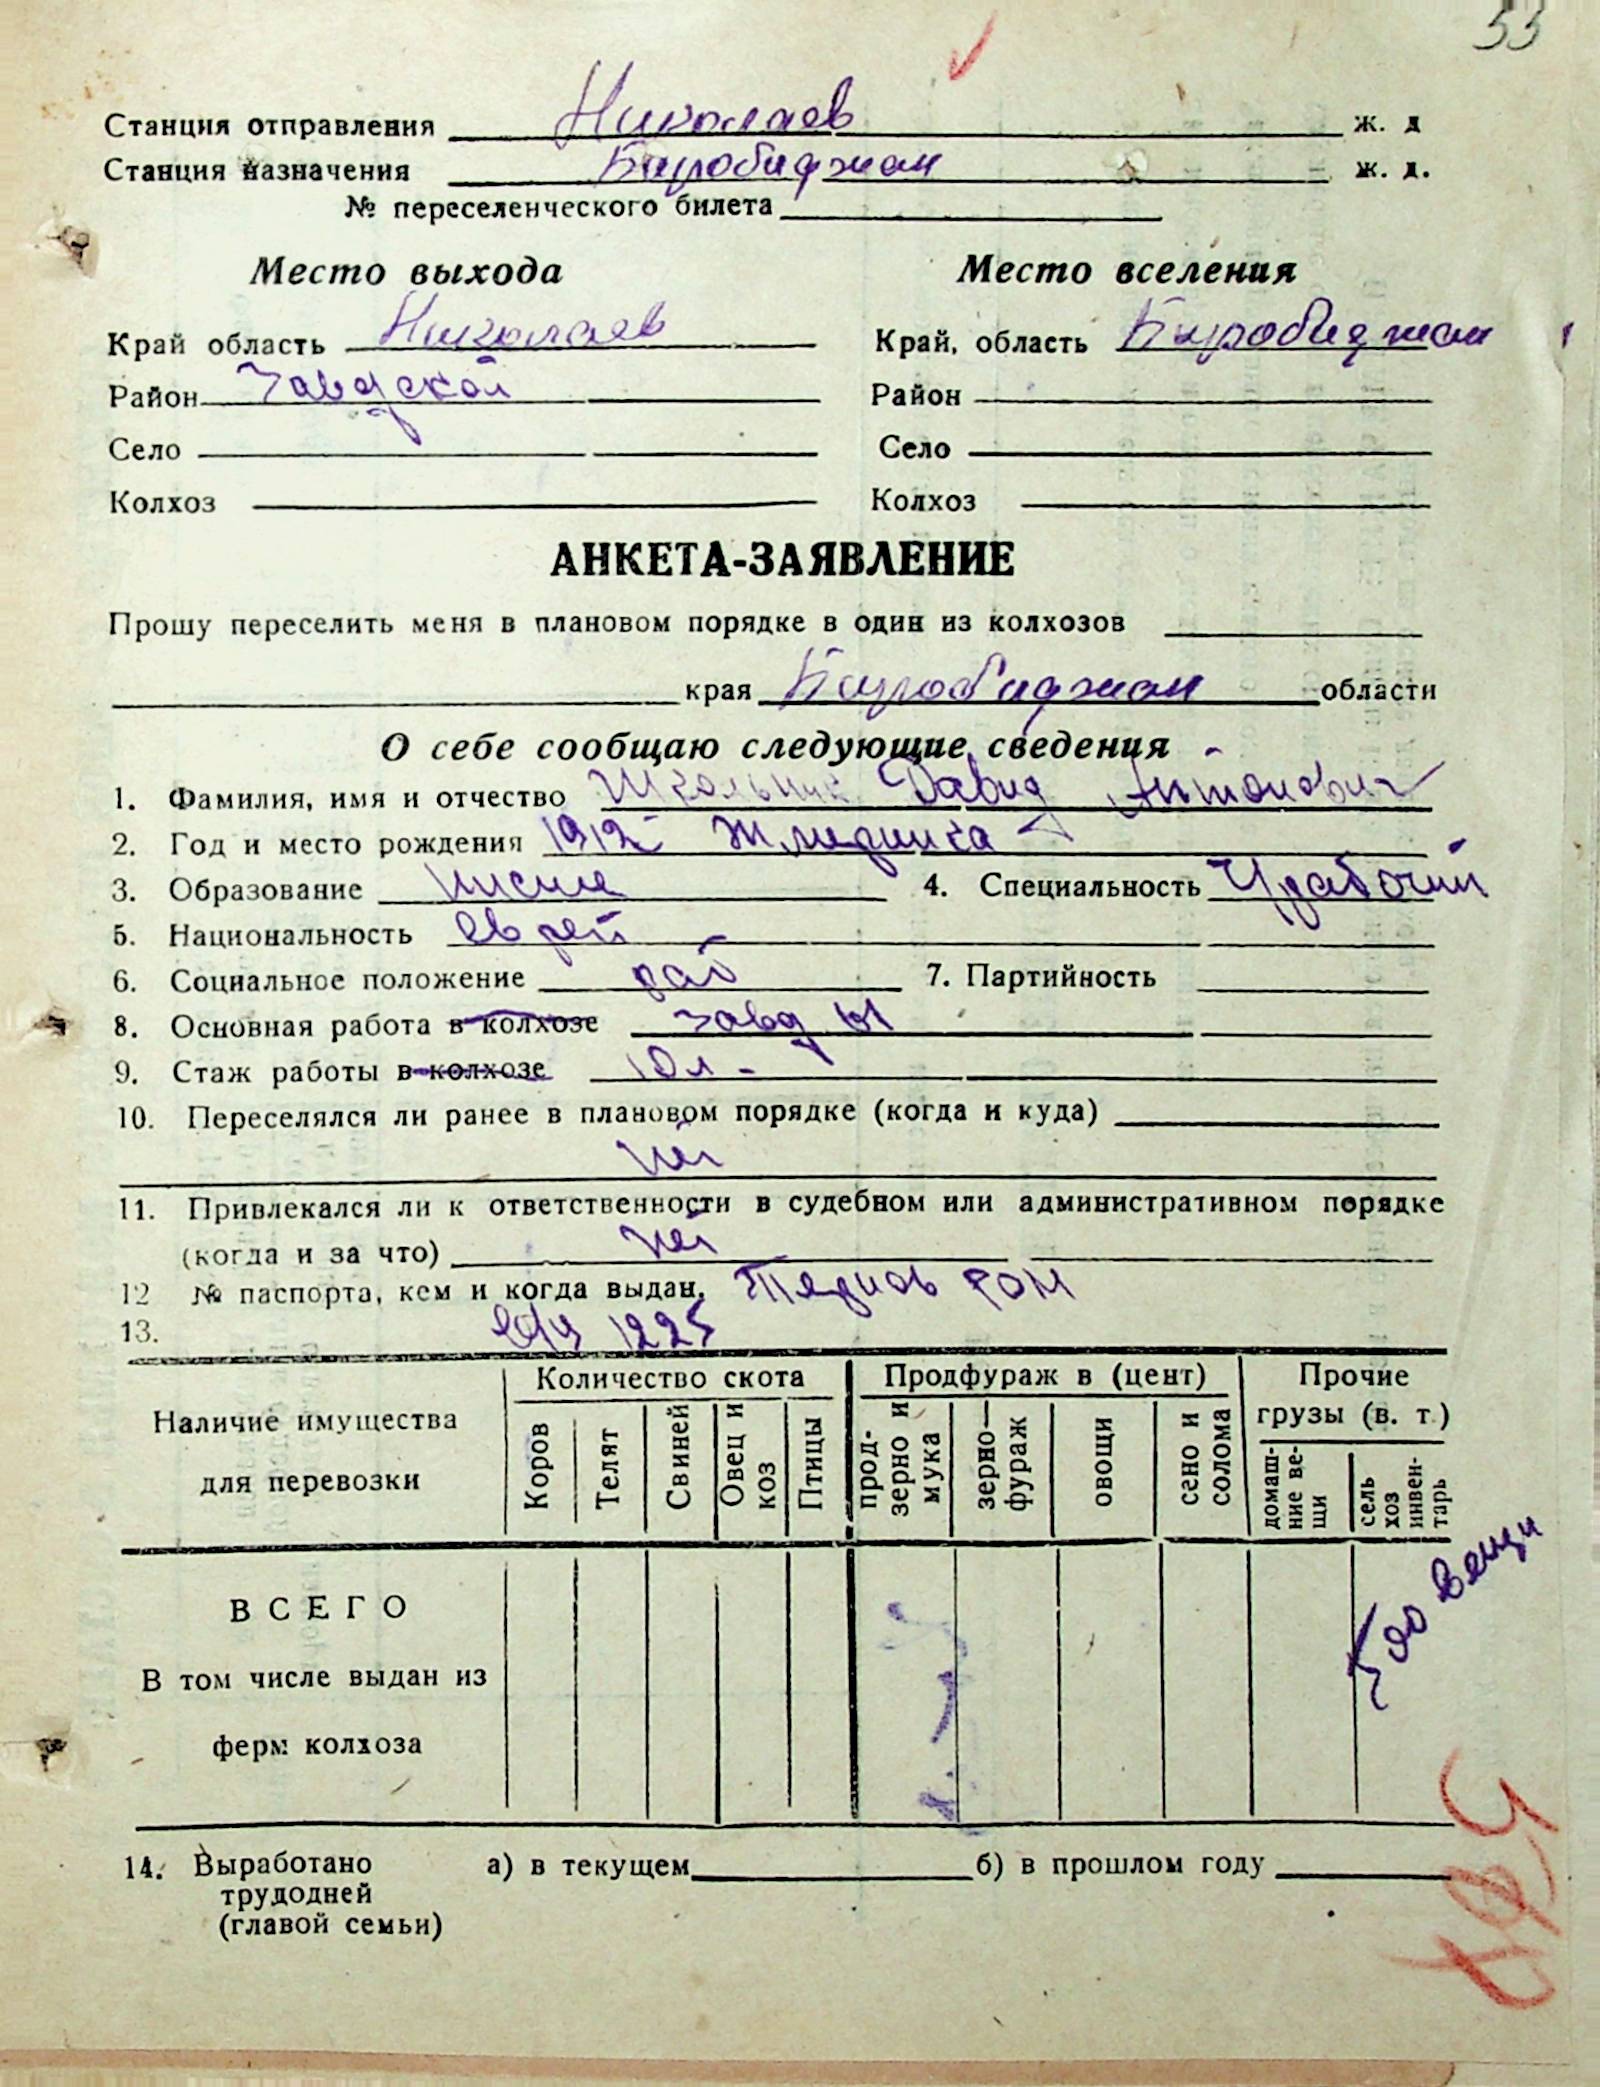 33
Станция отправления Николаев ж. д
Станция назначения Биробиджан ж. д.
№ переселенческого билета
Место выхода Место вселения
Край область Николаев Край, область Биробиджан
Район Заводской Район
Село Село
Колхоз Колхоз
АНКЕТА-ЗАЯВЛЕНИЕ
Прошу переселить меня в плановом порядке в один из колхозов
края Биробиджан области
О себе сообщаю следующие сведения
1. Фамилия, имя и отчество Школьник Давид Антонович
2. Год и место рождения 1912
3. Образование низшее 4. Специальность Ч/рабочий
5. Национальность еврей
6. Социальное положение раб 7. Партийность
8. Основная работа в колхозе завод
9. Стаж работы в колхозе 10 л -
10. Переселялся ли ранее в плановом порядке (когда и куда)
нет
11. Привлекался ли к ответственности в судебном или административном порядке
(когда и за что) нет
12 № паспорта, кем и когда выдан, РОМ
13. 1225
Количество скота Продфураж в (цент) Прочие
грузы (в. т.)
Наличие имущества
для перевозки
Коров Телят Свиней Овец и коз Птицы прод-зерно и мука зерно-фураж овощи сено и солома домаш-ние ве-щи сель хоз инвен-тарь
500 вещи
ВСЕГО
В том числе выдан из
ферм колхоза
14. Выработано а) в текущем б) в прошлом году
трудодней
(главой семьи)